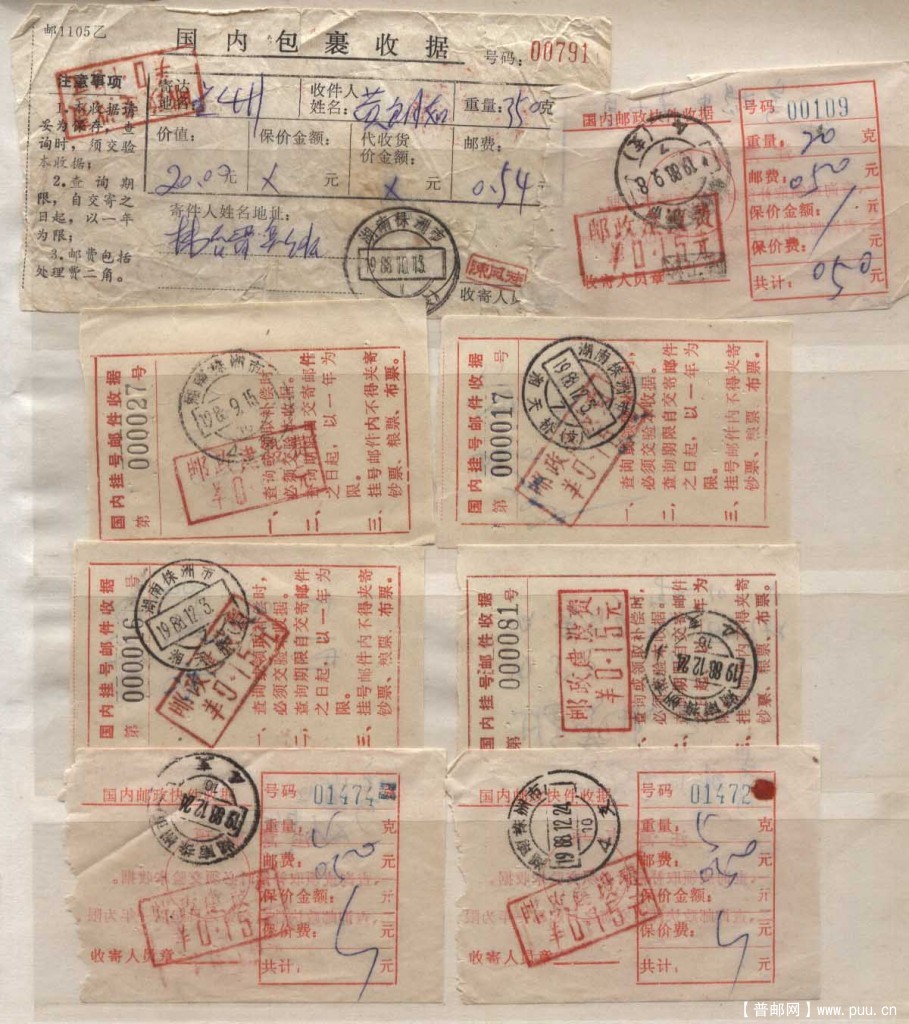 邮1105乙
国内包裹收据
号码：00791
注意事项
1.本收据请
妥为保存，查
询时，须交验
本收据；
2.查询期
限，自交寄之
日起，以一年
为限；
3.邮费包括
处理费二角。
寄达
地名：
收件人
姓名：
重量：350克
价值：
20.00元
保价金额：
×元
代收货
价金额：
×元
邮费：
0.54元
寄件人姓名地址：
湖南株洲市
1988.10.15
收寄人员
国内邮政快件收据
号码 00109
重量：20克
邮费：050元
保价金额：元
保价费：元
共计：050元
1988.9.8
邮政建设费
¥0.15元
收寄人员章
国内挂号邮件收据
第000027号
一、查询或领取补偿时，
必须交验本收据。
二、查询期限自交寄邮件
之日起，以一年为
限。
三、挂号邮件内不得夹寄
钞票、粮票、布票。
湖南株洲市
1988.9.15
国内挂号邮件收据
第000017号
一、查询或领取补偿时，
必须交验本收据。
二、查询期限自交寄邮件
之日起，以一年为
限。
三、挂号邮件内不得夹寄
钞票、粮票、布票。
湖南株洲市
1988.12.3
邮政
¥0.15
国内挂号邮件收据
第000016号
一、查询或领取补偿时，
必须交验本收据。
二、查询期限自交寄邮件
之日起，以一年为
限。
三、挂号邮件内不得夹寄
钞票、粮票、布票。
湖南株洲市
1988.12.3
邮政建设费
¥0.15元
国内挂号邮件收据
第000081号
一、查询或领取补偿时，
必须交验本收据。
二、查询期限自交寄邮件
之日起，以一年为
限。
三、挂号邮件内不得夹寄
钞票、粮票、布票。
邮政建设费
¥0.15元
湖南株洲
1988.12.24
16
国内邮政快件收据
号码 01474
重量：5克
邮费：050元
保价金额：元
保价费：元
共计：元
湖南株洲市
1988.12.24
16
¥0.15
收寄人员章
国内邮政快件收据
号码 01472
重量：5克
邮费：050元
保价金额：元
保价费：元
共计：元
湖南株洲市
1988.12.24
16
¥0.15
收寄人员章
【普邮网】www.puu.cn